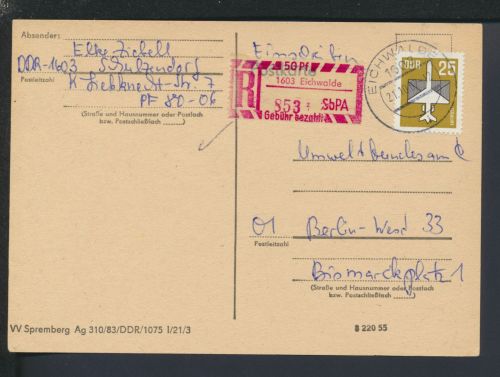 Absender:
Elke Ziebell
DDR-1603 Schulzendorf
Postleitzahl
K. Liebknecht-Str. 7
PF 80-06
(Straße und Hausnummer oder Postfach
bzw. Postschließfach)
VV Spremberg Ag 310/83/DDR/1075 I/21/3
Einschreiben
Postkarte
50 Pf
R
1603 Eichwalde
853
SbPA
Gebühr bezahlt
EICHWALDE
DDR 25
Umweltbundesamt
01 Berlin-West 33
Postleitzahl
Bismarckplatz 1
(Straße und Hausnummer oder Postfach
bzw. Postschließfach)
8 220 55